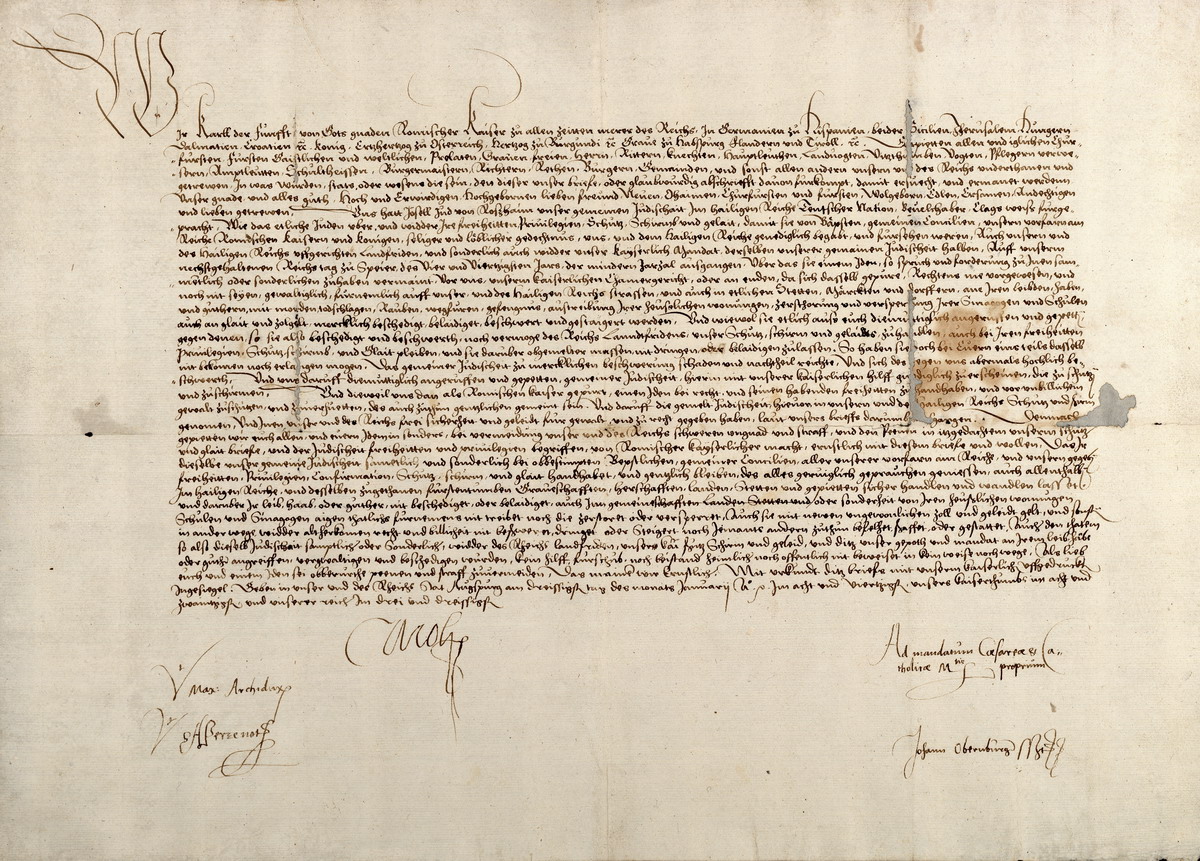 Wir Karll der Funfft von Gots gnaden Romischer Kaiser zu allen zeiten merer des Reichs. In Germanien zu Hispanien, beider Sicilien, Jherusalem, Hungern
Dalmatien, Croatien &c. konig, Ertzhertzog zu Osterreich, Hertzog zu Burgundi &c. Graue zu Habspurg Flandern und Tiroll. &c. Empieten allen und iglichen Chur-
fursten Fursten Gaistlichen und weltlichen, Prelaten, Grauen, freien, Herrn, Rittern, knechten, Hauptleuthen, Landuogten, Vitzthumben, Vogten, Pflegern, verwe-
sern, Amptleuten, Schultheissen, Burgermaistern, Richtern, Rethen, Burgern, Gemainden, und sonst allen andern unsern und des Reichs underthanen und
getrewen, In was wurden, stats, oder wesens die sein, den dieser unser brieue, oder glaubwurdig abschriefft dauon furkompt, damit ersucht, und ermant werden,
unser gnade und alles guth. Hoch und Erwurdigen Hochgebornen lieben freund Neuen, Ohaimen, Churfursten und fursten, Wolgeborn, Edlen, Ersamen, Andechtigen
und lieben getrewen, Uns hatt Josell Jud von Roszhaim unser gemeinen Judischait Im hailigen Reiche Teutscher Nation, beuelhaber, Clags weisz furge-
pracht, Wie das etliche Juden uber, und widder Ire freihetten Priuilegien, Schutz, Schirmb und gelait, damit sie von Bapsten, gemeinen Concilien, unsern vorfarn am
Reiche Romischen kaisern und konigen, seliger und loblicher gedechtnus, uns, und dem hailigen Reiche genediglich begabt, und fursehen weren, Auch unsern und
des Hailigen Reichs uffgerichten Landfriden, und sonderlich auch widder unser kayserlich Mandat, derselben unserer gemainen Judischeit halben, Auff unserm
nechstgehaltenen Reichs tag zu Speier, des Vier und Viertzigsten Jars, der mindern Jarzal ausgangen, Uber das sie einem Iden, so spruch und forderung zu Inen sam-
mettlich oder sonderlichen zuhaben vermaint, Vor uns, unserm kaiserlichen Camergericht, oder an enden, da sich dasselb gepure, Rechtens nie vorgewesen, und
noch nit seyen, gewaltiglich, furnemlich auff unser und des Hailigen Reichs strassen, und auch in etlichen Stetten, Marckten und Dorffern, ann Iren leibden, habn,
und guthern, mit morden, todschlagen, Rauben, wegfuren, gefengnus, austreibung Irer heuszlichen wonungen, zerstorung und versperrung Irer Sinagogen und Schulen
auch an glait und zolgelt, mercklich beschedigt, belaidiget, beschwert und gestaigert worden, Und wiewol sie etlich aus euch diemutiglich angeruffen und gepetten
gegen denen, so sie also beschedigt und beschwerth, noch vermoge des Reichs Landfridens, unser Schutz, schirm und gelaidts, zuhandlen, auch bei Iren freiheitten
Priuilegien, Schutz, Schirmb, und Glait pleiben, und sie daruber obgemelter massen nit dringen oder belaidigen zulassen, So haben sie doch bei Euern eins teils dasselb
nit bekomen noch erlangen mogen, Das gemeiner Judischeit zu mercklichen beschwerung schaden und nachtheil reichte, Und sich deszwegen uns abermals hochlich be-
schwerth, Und uns daruff diemuttiglich angeruffen und gepetten, gemeiner Judischeit, hierin mit unserer kaiserlichen hilff gnediglich zuerscheinen, die zu schutzn
und zuschirmen, Und dieweil uns dan als Romischen kaiser gepurt, einen Iden bei recht, und seinen habenden freiheitten zuhandhaben, und vor unbillichem
gewalt zuschutzen, und zuuerhuetten, des auch zuthun gentzlichen gemeint sein, Und daruff die gemelt Judischeit, hieuor in unsern und des hailigen Reichs Schutz und schirm
genomen, Und Inen unser und des Reichs frei sicherheit und geleidt fur gewalt und zu recht gegeben haben, laut unsers brieffs darumb auszgangen, Demnach
gepieten wir euch allen, und euerm Idem in sonders, bei vermeidung unser und des Reichs schweren ungnad und straff, und den Penen in itzgedachtem unserm schutz
und glait brieffe, und der Judischen freiheitten und priuilegien begriffen, von Romischer kayserlicher macht, ernstlich mit diesem brieffe und wollen, Das Ir
dieselbe unser gemeine Judischeit samettlich und sonderlich bei obbestimpten Bepstlichen, gemeiner Concilien, aller unserer vorfarn am Reiche, und unsern gegeben
freiheitten, Priuilegien, Confirmation, Schutz, schirm, und glait handhabet, und genglich bleiben, des alles geruiglich geprauchen geniessen, auch allenthalben
Im hailigen Reiche, und desselben zugethanen furstenthumben, Graueschafften, herschafften, landen, Stetten und gepietten sicher handlen und wandlen lasst
und daruber Ir leib, haab, oder guther, nit beschediget, oder belaidiget, auch Inn gemeinschafften Landen Stetten und oder sonderheit von Iren heuszlichen wonungen,
Schulen und Sinagogen aigen thatlichs furnemens nit treibet noch die zerstoret oder versperret, Auch sie mit newen ungewonlichen zoll und geleidt gelt, und sunst
in ander wege widder alt herkomen recht und billicheit nit beschweret, dringet, oder Steigert noch Jemants andern zuthun beuelhet, schaffet, oder gestattet, Auch den thatern
so also dieselb Judischait samptlich oder Sonderlich, widder des Reichs landfriden, unsern kai. freiheit Schirm und geleid, und ditz unser gepoth und mandat an Irem leib, habe
oder guthe angreiffen, vergwaltigen und beschedigen wurden, kein hilff, furschub, noch beistand heimlich noch offentlich nit beweiset in kein weise noch wege, Als lieb
euch und einem Iden sei obberurte peenen und straff zuuermeiden, Das mainen wir Ernstlich, Mit urkundt ditz brieffs mit unserm kaiserlich uffgedruckten
Ingesiegel, Geben in unser und des Reichs Stat Augspurg am dreissigsten tag des monats Januarij Im acht und Viertzigsten unsers kaiserthumbs im acht und
zwantzigsten und unserer reich Im drei und dreissigsten
Carolus
Ad mandatum Cæsareæ et Ca-
tholicæ M.tis proprium
V.t Max: Archidux
V.t A Perrenot
Johann Obernburger